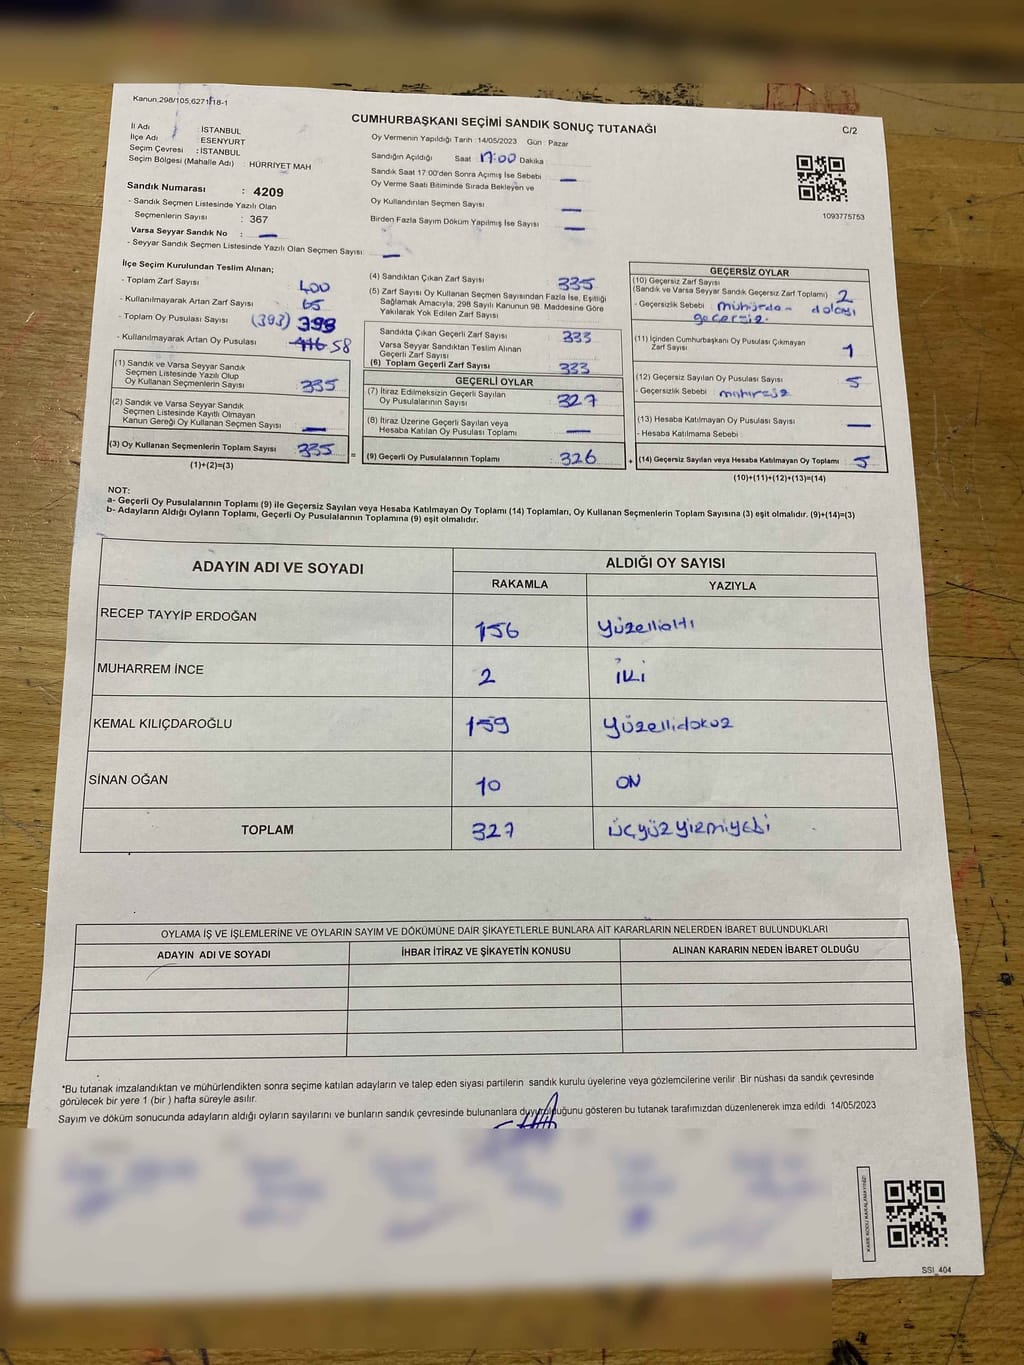 Kanun,298/105,6271/18-1
CUMHURBAŞKANI SEÇİMİ SANDIK SONUÇ TUTANAĞI
C/2
İl Adı : İSTANBUL
İlçe Adı : ESENYURT
Seçim Çevresi : İSTANBUL
Seçim Bölgesi (Mahalle Adı) : HÜRRİYET MAH
Sandık Numarası : 4209
- Sandık Seçmen Listesinde Yazılı Olan
Seçmenlerin Sayısı : 367
Varsa Seyyar Sandık No : —
- Seyyar Sandık Seçmen Listesinde Yazılı Olan Seçmen Sayısı: —
Oy Vermenin Yapıldığı Tarih :14/05/2023 Gün : Pazar
Sandığın Açıldığı Saat 17:00 Dakika
Sandık Saat 17:00'den Sonra Açımış İse Sebebi —
Oy Verme Saati Bitiminde Sırada Bekleyen ve
Oy Kullandırılan Seçmen Sayısı —
Birden Fazla Sayım Döküm Yapılmış İse Sayısı —
1093775753
İlçe Seçim Kurulundan Teslim Alınan;
- Toplam Zarf Sayısı 400
- Kullanılmayarak Artan Zarf Sayısı 65
- Toplam Oy Pusulası Sayısı (393) 393
- Kullanılmayarak Artan Oy Pusulası 416 58
(1) Sandık ve Varsa Seyyar Sandık
Seçmen Listesinde Yazılı Olup
Oy Kullanan Seçmenlerin Sayısı 335
(2) Sandık ve Varsa Seyyar Sandık
Seçmen Listesinde Kayıtlı Olmayan
Kanun Gereği Oy Kullanan Seçmen Sayısı —
(3) Oy Kullanan Seçmenlerin Toplam Sayısı 335 =
(1)+(2)=(3)
(4) Sandıktan Çıkan Zarf Sayısı : 335
(5) Zarf Sayısı Oy Kullanan Seçmen Sayısından Fazla İse, Eşitliği
Sağlamak Amacıyla, 298 Sayılı Kanunun 98. Maddesine Göre
Yakılarak Yok Edilen Zarf Sayısı
Sandıkta Çıkan Geçerli Zarf Sayısı : 333
Varsa Seyyar Sandıktan Teslim Alınan
Geçerli Zarf Sayısı
(6) Toplam Geçerli Zarf Sayısı : 333
GEÇERLİ OYLAR
(7) İtiraz Edilmeksizin Geçerli Sayılan
Oy Pusulalarının Sayısı : 327
(8) İtiraz Üzerine Geçerli Sayılan veya
Hesaba Katılan Oy Pusulası Toplamı —
(9) Geçerli Oy Pusulalarının Toplamı : 326 +
GEÇERSİZ OYLAR
(10) Geçersiz Zarf Sayısı
(Sandık ve Varsa Seyyar Sandık Geçersiz Zarf Toplamı) 2
- Geçersizlik Sebebi : mühürden dolayı
geçersiz.
(11) İçinden Cumhurbaşkanı Oy Pusulası Çıkmayan
Zarf Sayısı 1
(12) Geçersiz Sayılan Oy Pusulası Sayısı 5
- Geçersizlik Sebebi : mühürsüz
(13) Hesaba Katılmayan Oy Pusulası Sayısı —
- Hesaba Katılmama Sebebi :
(14) Geçersiz Sayılan veya Hesaba Katılmayan Oy Toplamı 5
(10)+(11)+(12)+(13)=(14)
NOT:
a- Geçerli Oy Pusulalarının Toplamı (9) ile Geçersiz Sayılan veya Hesaba Katılmayan Oy Toplamı (14) Toplamları, Oy Kullanan Seçmenlerin Toplam Sayısına (3) eşit olmalıdır. (9)+(14)=(3)
b- Adayların Aldığı Oyların Toplamı, Geçerli Oy Pusulalarının Toplamına (9) eşit olmalıdır.
ADAYIN ADI VE SOYADI ALDIĞI OY SAYISI
RAKAMLA YAZIYLA
RECEP TAYYİP ERDOĞAN 156 Yüzellialtı
MUHARREM İNCE 2 İki
KEMAL KILIÇDAROĞLU 159 Yüzellidokuz
SİNAN OĞAN 10 ON
TOPLAM 327 üçyüzyirmiyedi
OYLAMA İŞ VE İŞLEMLERİNE VE OYLARIN SAYIM VE DÖKÜMÜNE DAİR ŞİKAYETLERLE BUNLARA AİT KARARLARIN NELERDEN İBARET BULUNDUKLARI
ADAYIN ADI VE SOYADI İHBAR İTİRAZ VE ŞİKAYETİN KONUSU ALINAN KARARIN NEDEN İBARET OLDUĞU
*Bu tutanak imzalandıktan ve mühürlendikten sonra seçime katılan adayların ve talep eden siyasi partilerin sandık kurulu üyelerine veya gözlemcilerine verilir Bir nüshası da sandık çevresinde
görülecek bir yere 1 (bir ) hafta süreyle asılır.
Sayım ve döküm sonucunda adayların aldığı oyların sayılarını ve bunların sandık çevresinde bulunanlara duyurulduğunu gösteren bu tutanak tarafımızdan düzenlenerek imza edildi 14/05/2023
KARE KODU KARALAMAYINIZ!
SSI_404